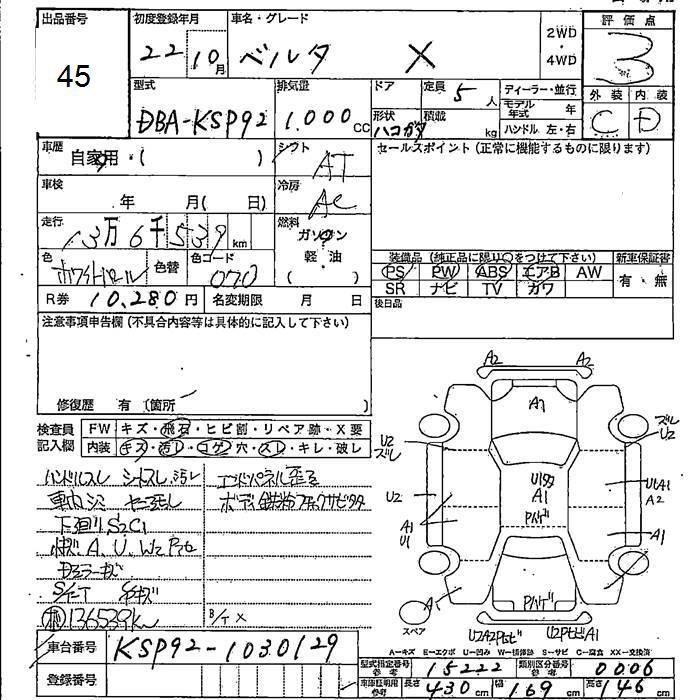 出品番号 初度登録年月 車名・グレード 評価点
45 22 10月 ベルタ X 2WD・4WD 3
型式 排気量 ドア 定員 5人 ディーラー・並行 外装 内装
DBA-KSP92 1.000cc 形状 ハコガタ 積載 kg モデル年式 年 C D
ハンドル 左・右
車歴 自家用・( ) シフト AT セールスポイント(正常に機能するものに限ります)
車検 年 月( 日) 冷房 AC
走行 13万6千539km 燃料 ガソリン
色 ホワイトパール 色替 色コード 070 軽・油 ( )
装備品(純正品に限り○をつけて下さい) 新車保証書
PS PW ABS エアB AW 有・無
SR ナビ TV カワ
R券 10,280円 名変期限 月 日 後日品
注意事項申告欄(不具合内容等は具体的に記入して下さい)
修復歴 有 〔箇所 〕
検査員記入欄 FW キズ・飛石・ヒビ割・リペア跡・X要
内装 キズ・汚レ・コゲ・穴・スレ・キレ・破レ
ハンドルスレ シートスレ,汚レ
車内シミ
下廻りS2C1
A、U、W2
S/T
136539km B/T X
A2 A2
A1
U2 ズレ ズレ U2
U2 A1 U1 A1 U1A1 A2
A1
A1
スペア
A-キズ E-エクボ U-凹み W-補修跡 S-サビ C-腐食 XX-交換済
車台番号 KSP92-1030129
型式指定番号 参考 15222 類別区分番号 参考 0006
登録番号
車庫証明用 参考 長さ 430cm 幅 169cm 高さ 146cm